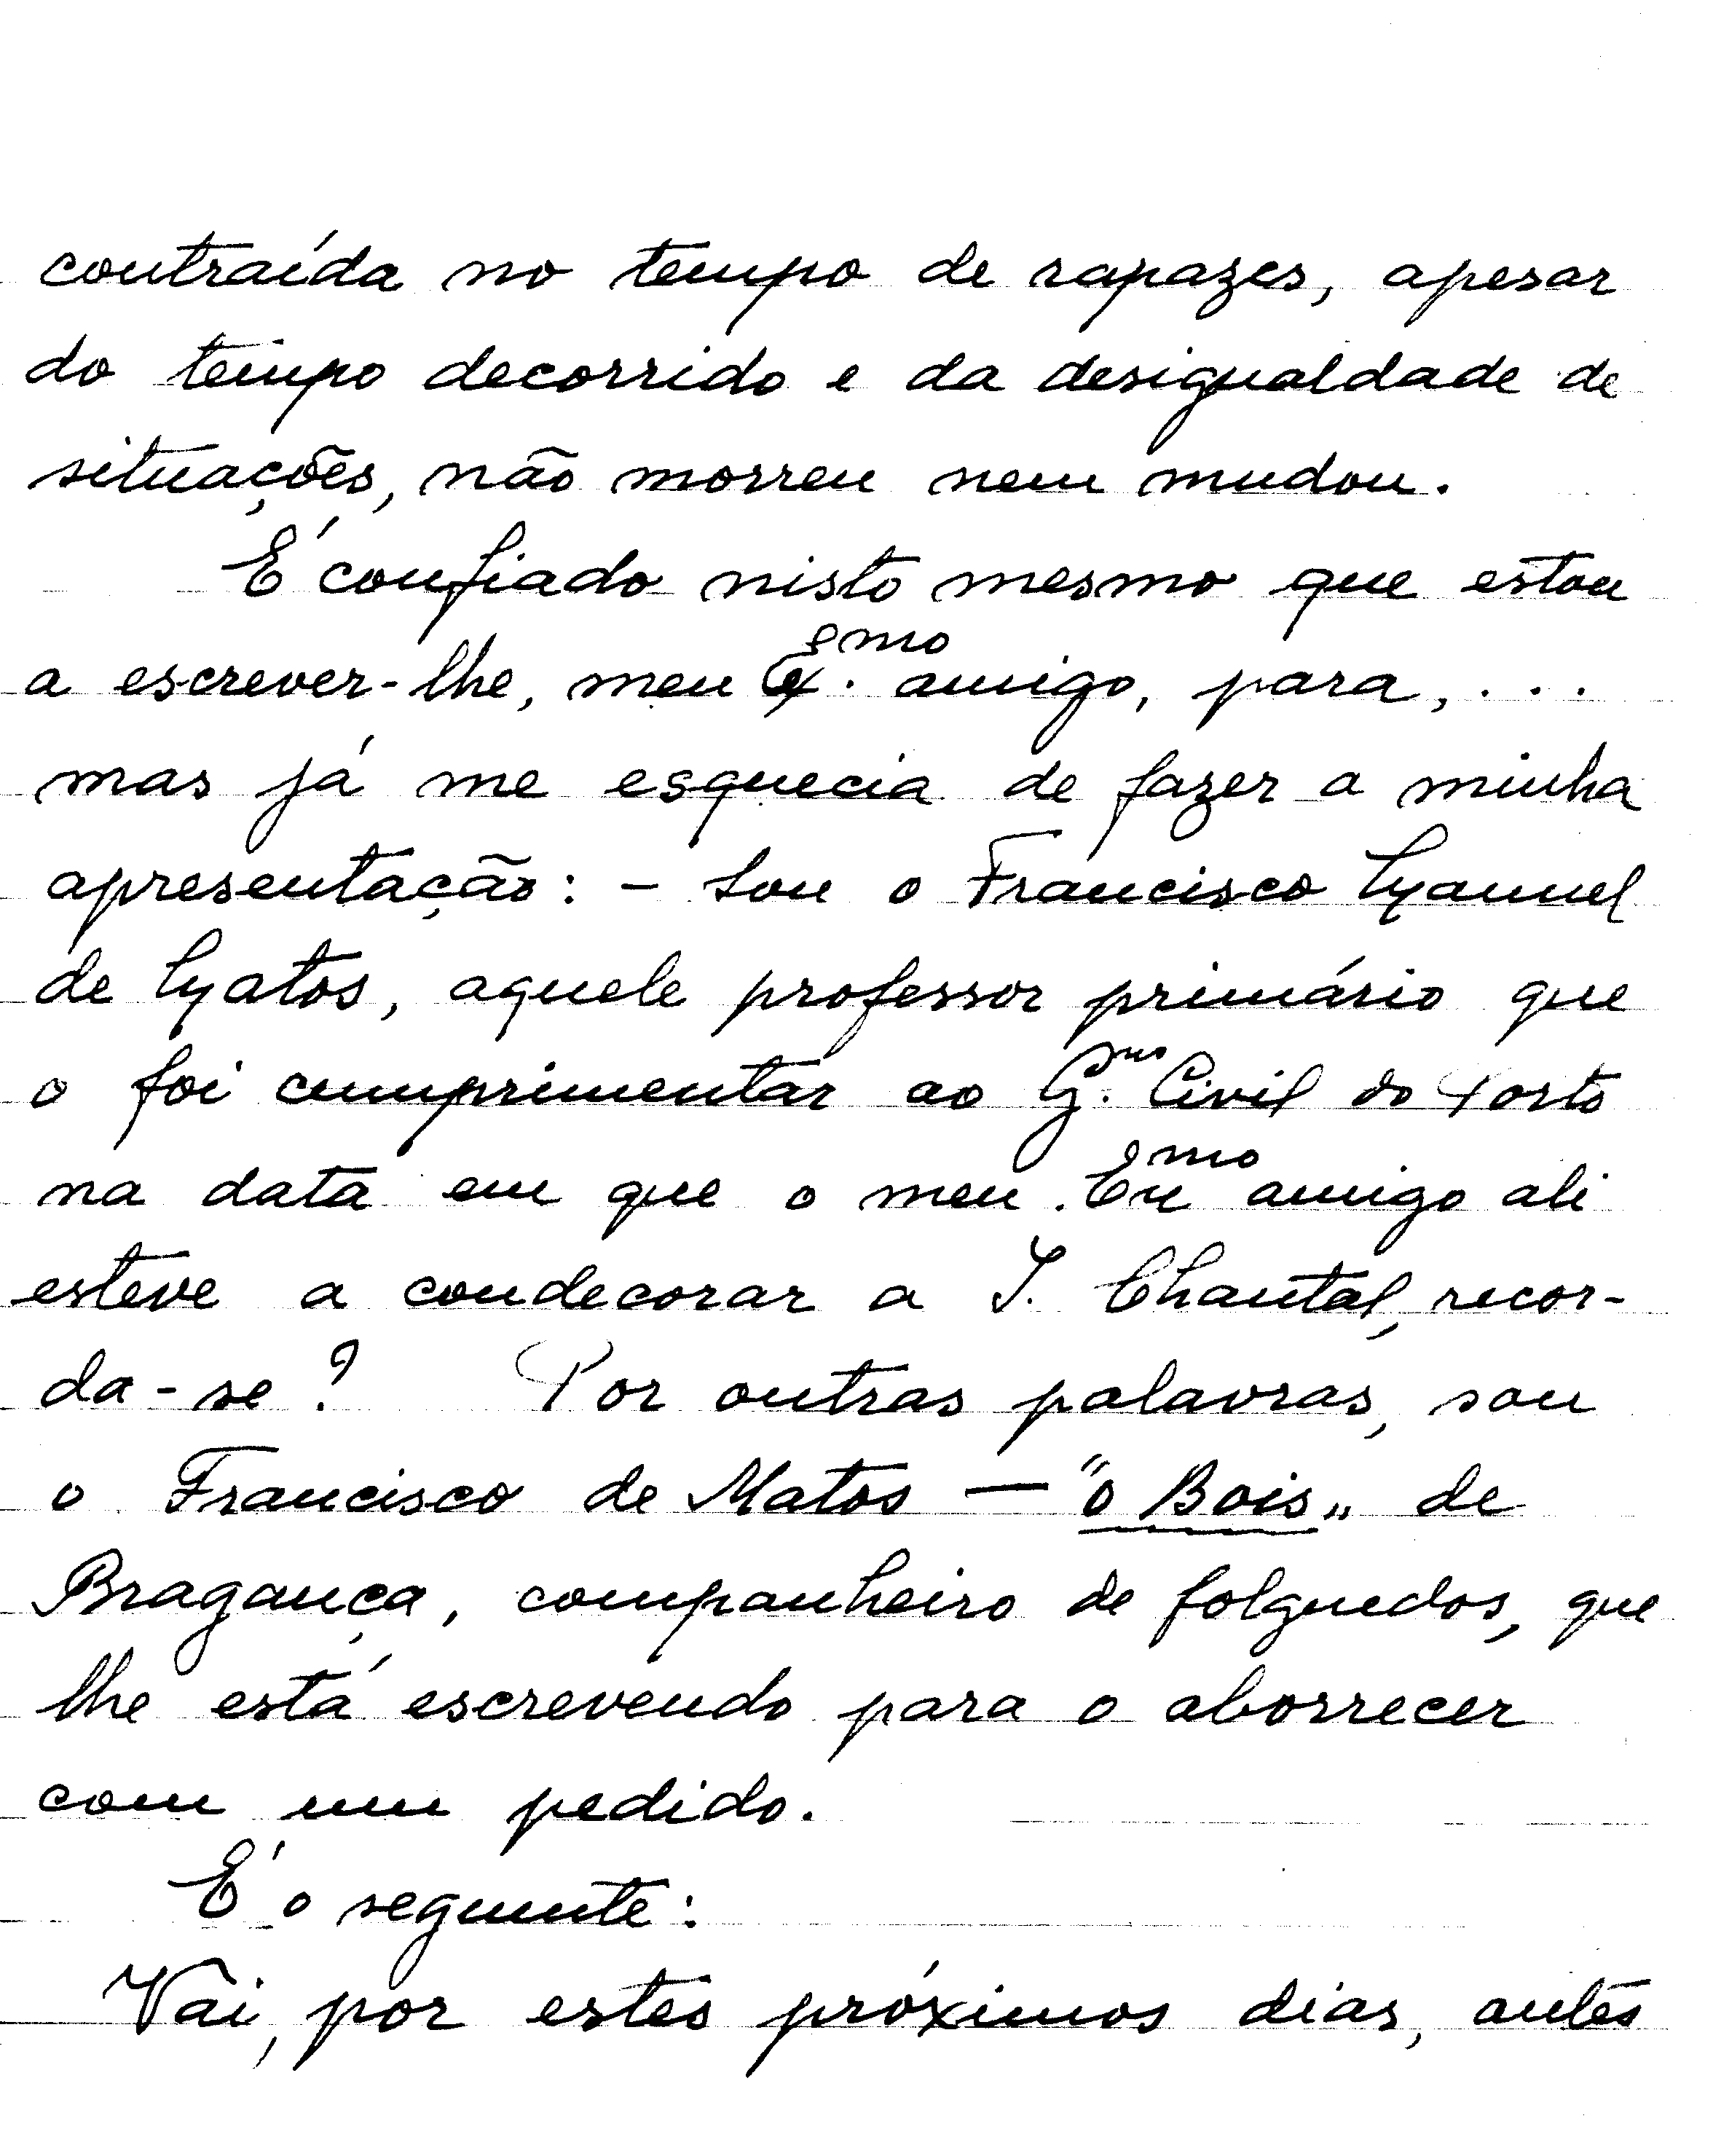 contraída no tempo de rapazes, apesar
do tempo decorrido e da desigualdade de
situações, não morreu nem mudou.
É confiado nisto mesmo que estou
a escrever-lhe, meu Ex.mo amigo, para, ...
mas já me esquecia de fazer a minha
apresentação: - Sou o Francisco Manuel
de Matos, aquele professor primário que
o foi cumprimentar ao G.no Civil do Porto
na data em que o meu Exmo amigo ali
esteve a condecorar a S. Chantal, recor-
da-se? Por outras palavras, sou
o Francisco de Matos — "o Bois" de
Bragança, companheiro de folguedos, que
lhe está escrevendo para o aborrecer
com um pedido.
É o seguinte:
Vai, por estes próximos dias, antes